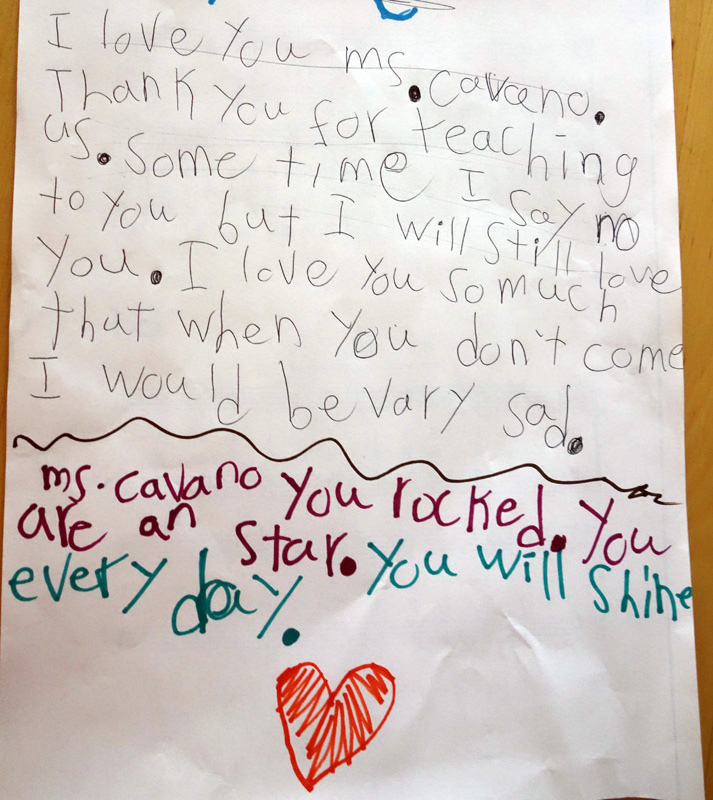 I love you ms. cavano.
Thank you for teaching
us. some time I say no
to you but I will still love
you. I love you so much
that when you don't come
I would be vary sad.
ms. cavano you rocked. you
are an star. you will shine
every day.